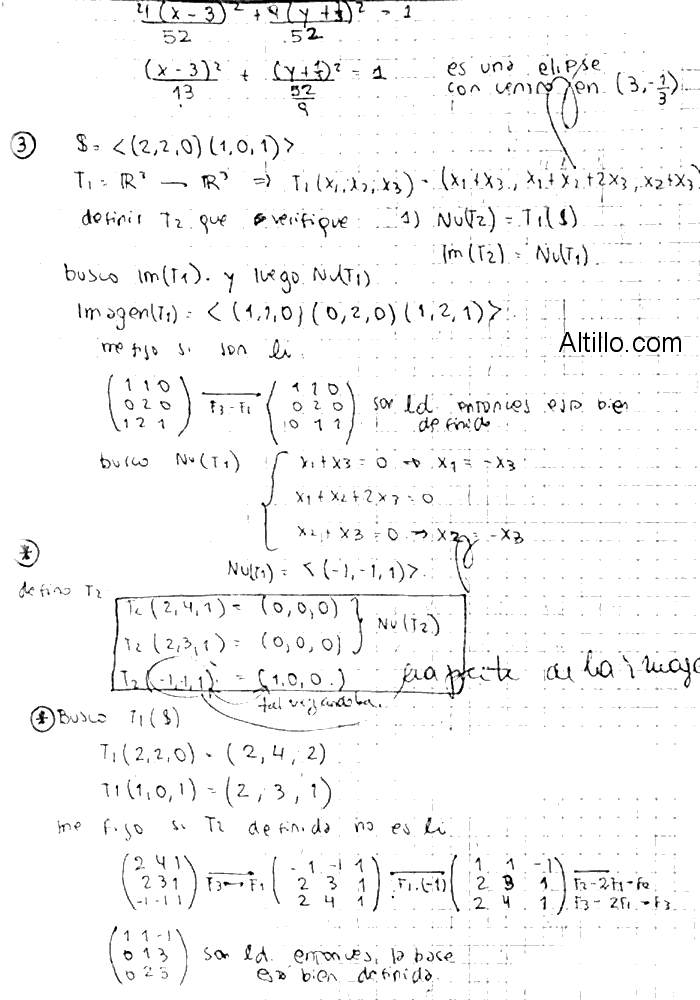 4(x-3)²/52 + 9(y+1/3)²/52 = 1
(x-3)²/13 + (y+1/3)²/(52/9) = 1 es una elipse
con centro en (3,-1/3)
③ S = <(2,2,0) (1,0,1)>
T₁ = ℝ³ → ℝ³ ⇒ T₁(x₁,x₂,x₃) = (x₁+x₃, x₁+x₂+2x₃, x₂+x₃)
definir T₂ que verifique 1) Nu(T₂) = T₁(S)
Im(T₂) = Nu(T₁).
busco Im(T₁). y luego Nu(T₁)
Imagen(T₁) = <(1,1,0) (0,2,0) (1,2,1)>
Altillo.com
me fijo si son li
(1 1 0 / 0 2 0 / 1 2 1) F₃-F₁ → (1 1 0 / 0 2 0 / 0 1 1) son ld entonces esta bien
definido
busco Nu(T₁) { x₁+x₃ = 0 → x₁ = -x₃
x₁+x₂+2x₃ = 0
x₂+x₃ = 0 → x₂ = -x₃
*
Nu(T₁) = <(-1,-1,1)>
defino T₂
T₂(2,4,1) = (0,0,0)
T₂(2,3,1) = (0,0,0) } Nu(T₂)
T₂(-1,-1,1) = (1,0,0) de la
* Busco T₁(S)
T₁(2,2,0) = (2,4,2)
T₁(1,0,1) = (2,3,1)
me fijo si T₂ definida no es li
(2 4 1 / 2 3 1 / -1 -1 1) F₃↔F₁ (-1 -1 1 / 2 3 1 / 2 4 1) F₁.(-1) (1 1 -1 / 2 3 1 / 2 4 1) F₂-2F₁→F₂
F₃-2F₁→F₃
(1 1 -1 / 0 1 3 / 0 2 3) son ld entonces, la base
esta bien definida.